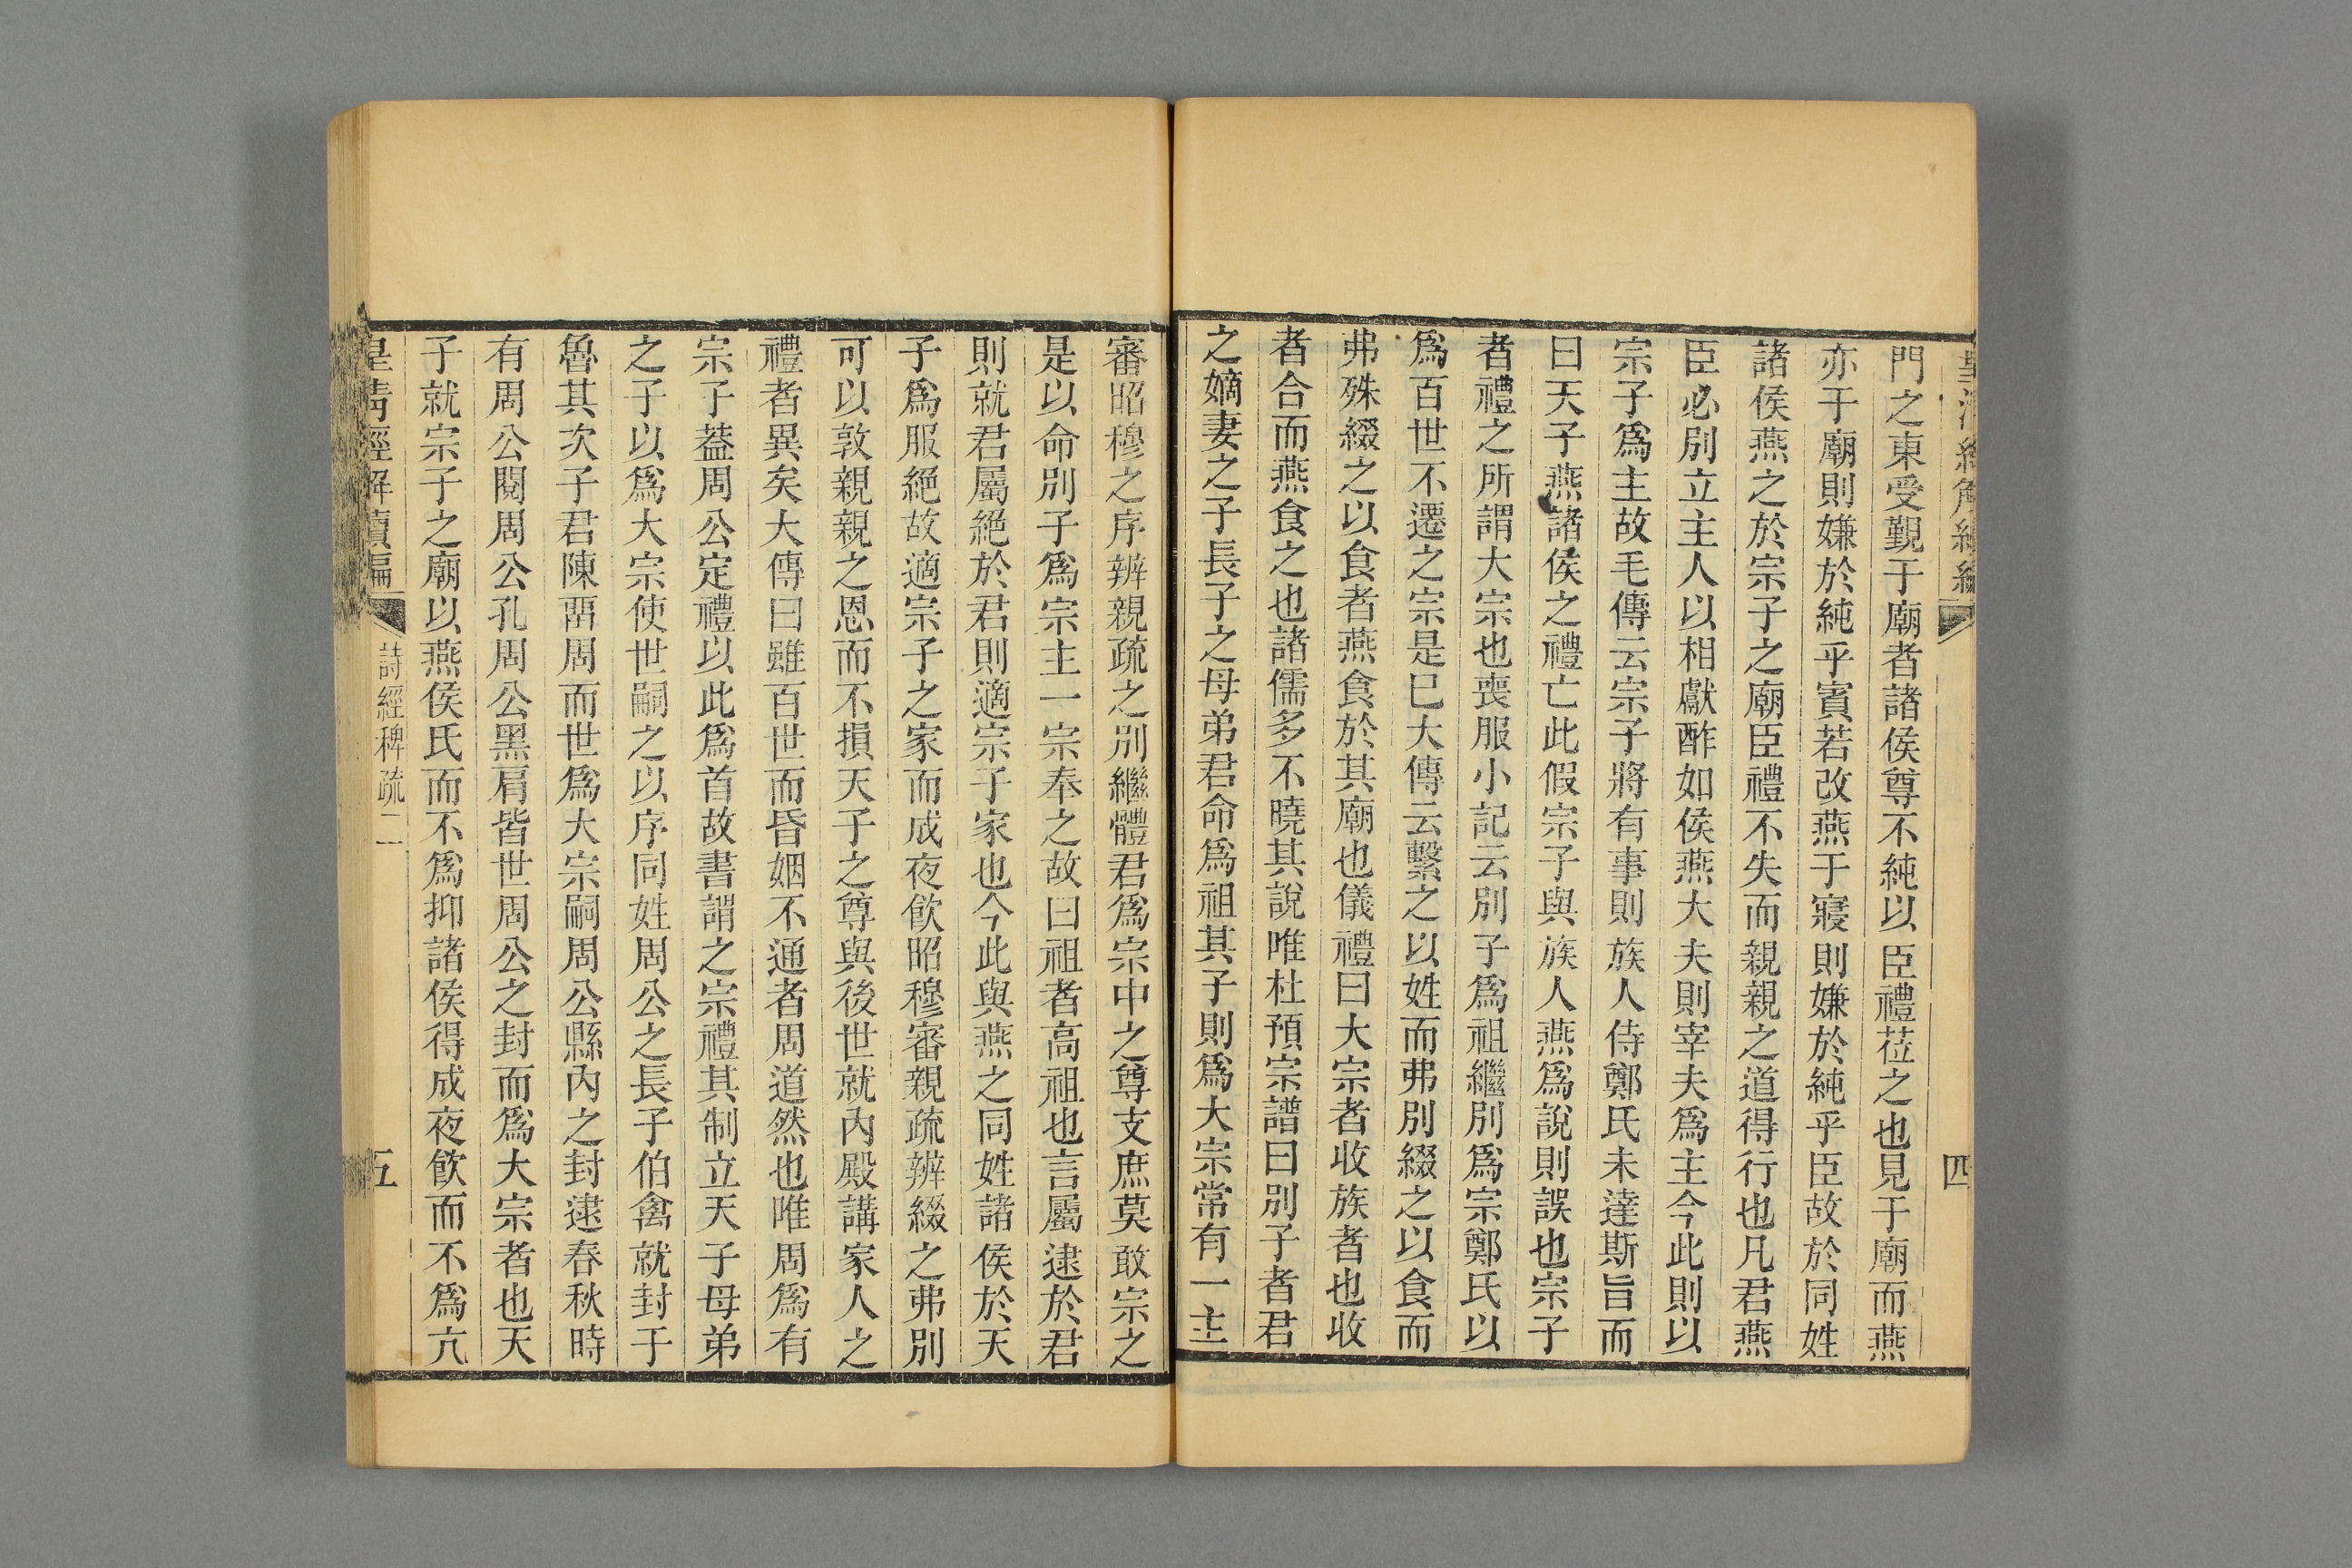 門之東受覲于廟者諸侯尊不純以臣禮莅之也見于廟而燕
亦于廟則嫌於純乎賓若改燕于寢則嫌於純乎臣故於同姓
諸侯燕之於宗子之廟臣禮不失而親親之道得行也凡君燕
臣必別立主人以相獻酢如侯燕大夫則宰夫爲主今此則以
宗子爲主故毛傳云宗子將有事則族人侍鄭氏未達斯旨而
曰天子燕諸侯之禮亡此假宗子與族人燕爲說則誤也宗子
者禮之所謂大宗也喪服小記云別子爲祖繼別爲宗鄭氏以
爲百世不遷之宗是巳大傳云繫之以姓而弗別綴之以食而
弗殊綴之以食者燕食於其廟也儀禮曰大宗者收族者也收
者合而燕食之也諸儒多不曉其說唯杜預宗譜曰別子者君
之嫡妻之子長子之母弟君命爲祖其子則爲大宗常有一主
四
審昭穆之序辨親疏之別繼體君爲宗中之尊支庶莫敢宗之
是以命別子爲宗主一宗奉之故曰祖者高祖也言屬逮於君
則就君屬絕於君則適宗子家也今此與燕之同姓諸侯於天
子爲服絕故適宗子之家而成夜飮昭穆審親疏辨綴之弗別
可以敦親親之恩而不損天子之尊與後世就內殿講家人之
禮者異矣大傳曰雖百世而昏姻不通者周道然也唯周爲有
宗子葢周公定禮以此爲首故書謂之宗禮其制立天子母弟
之子以爲大宗使世嗣之以序同姓周公之長子伯禽就封于
魯其次子君陳畱周而世爲大宗嗣周公縣內之封逮春秋時
有周公閱周公孔周公黑肩皆世周公之封而爲大宗者也天
子就宗子之廟以燕侯氏而不爲抑諸侯得成夜飮而不爲亢
皇清經解續編
詩經稗疏二
五